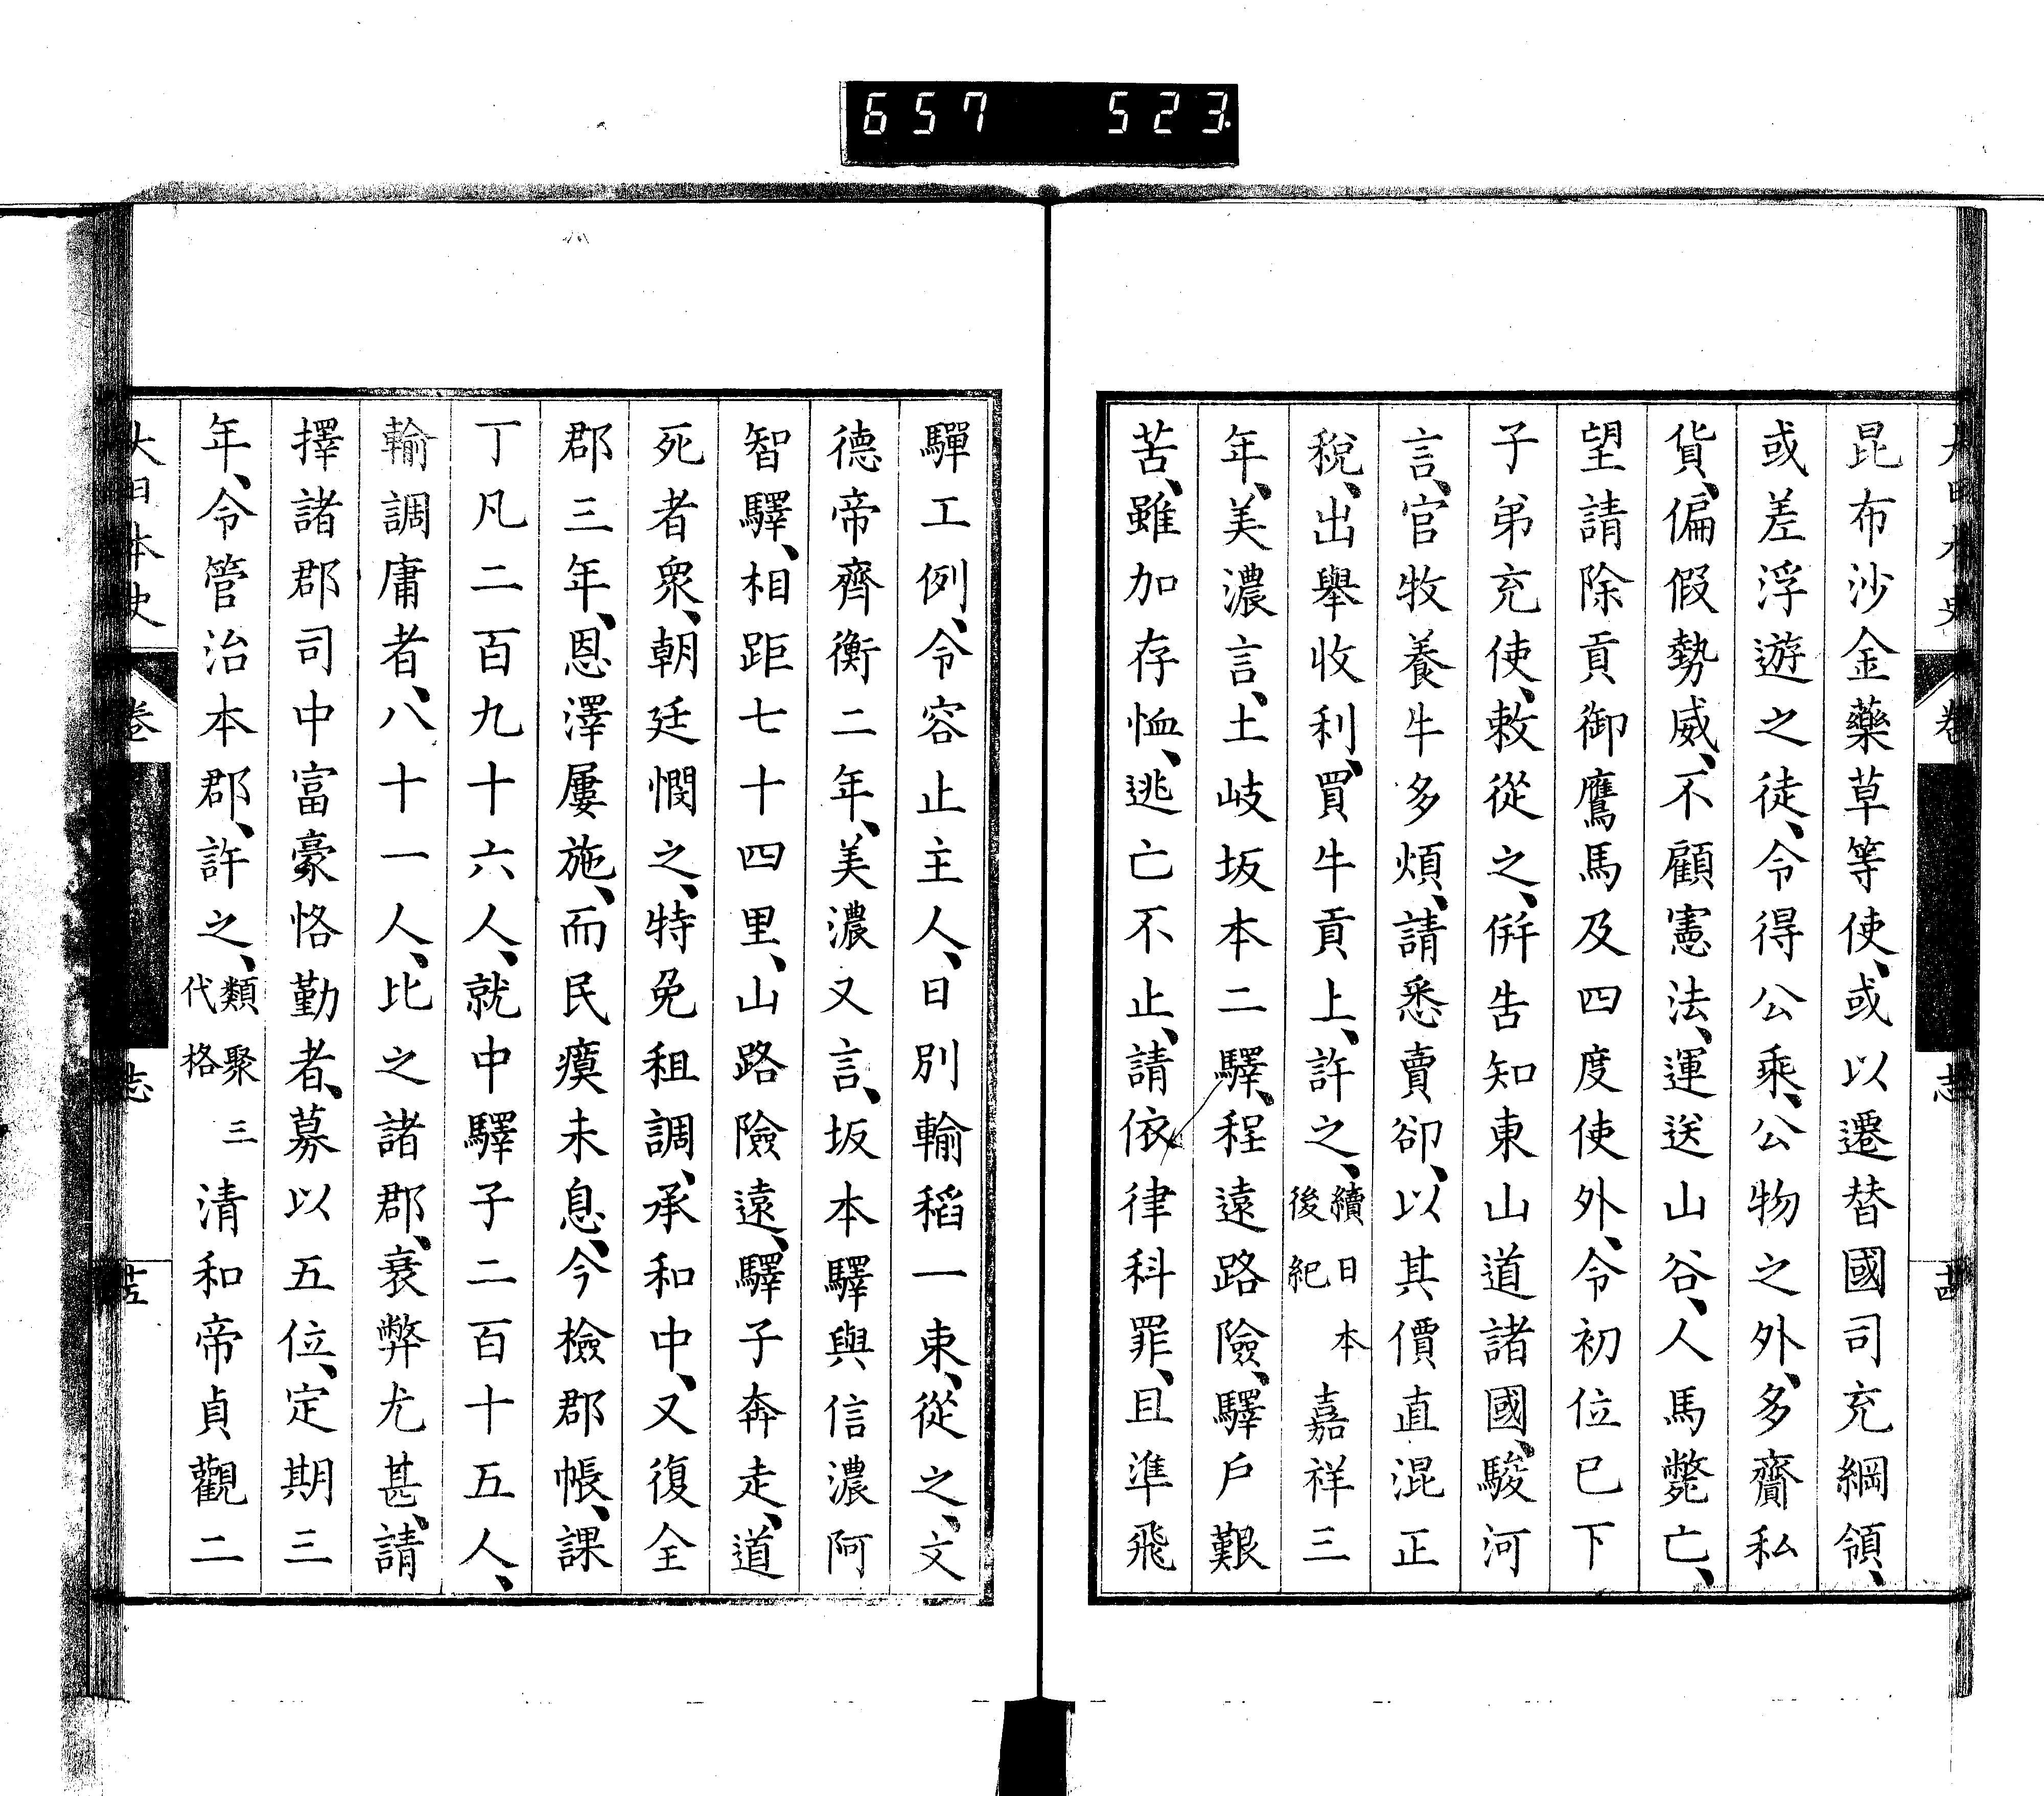 657 523
大日本史 卷 志 茜
昆布沙金藥草等使、或以遷替國司充綱領、
或差浮遊之徒、令得公乘、公物之外、多齎私
貨、偏假勢威、不顧憲法、運送山谷、人馬斃亡、
望請除貢御鷹馬及四度使外、令初位已下
子弟充使、敕從之、併告知東山道諸國、駿河
言、官牧養牛多煩、請悉賣卻、以其價直混正
稅、出舉收利、買牛貢上、許之、續日本後紀 嘉祥三
年、美濃言、土岐坂本二驛、程遠路險、驛戶艱
苦、雖加存恤、逃亡不止、請依律科罪、且準飛
驒工例、令容止主人、日別輸稻一束、從之、文
德帝齊衡二年、美濃又言、坂本驛與信濃阿
智驛、相距七十四里、山路險遠、驛子奔走、道
死者衆、朝廷憫之、特免租調、承和中、又復全
郡三年、恩澤屢施、而民瘼未息、今檢郡帳、課
丁凡二百九十六人、就中驛子二百十五人、
輸調庸者、八十一人、比之諸郡、衰弊尤甚、請
擇諸郡司中富豪恪勤者、募以五位、定期三
年、令管治本郡、許之、類聚三代格 清和帝貞觀二
大日本史 卷 志